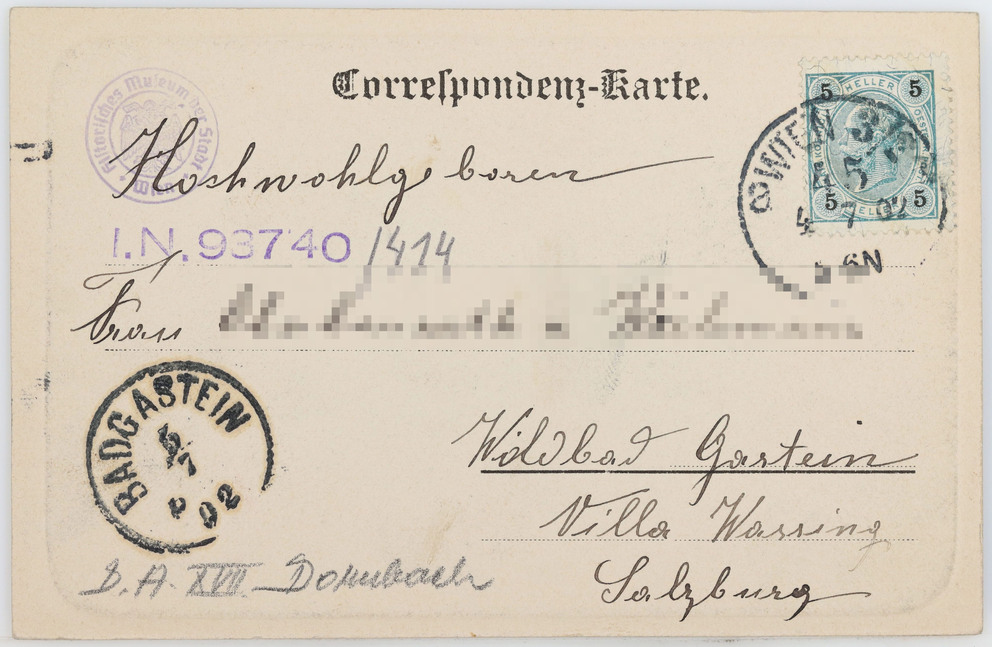 Correspondenz-Karte.
Historisches Museum der Stadt Wien
5 HELLER 5
WIEN
4 7 02
5 HELLER 5
6N
Hochwohlgeboren
I.N. 93740 /414
Frau
BADGASTEIN
5/7
02
Wildbad Gastein
Villa Wassing
Salzburg
B. A. XVII Dornbach